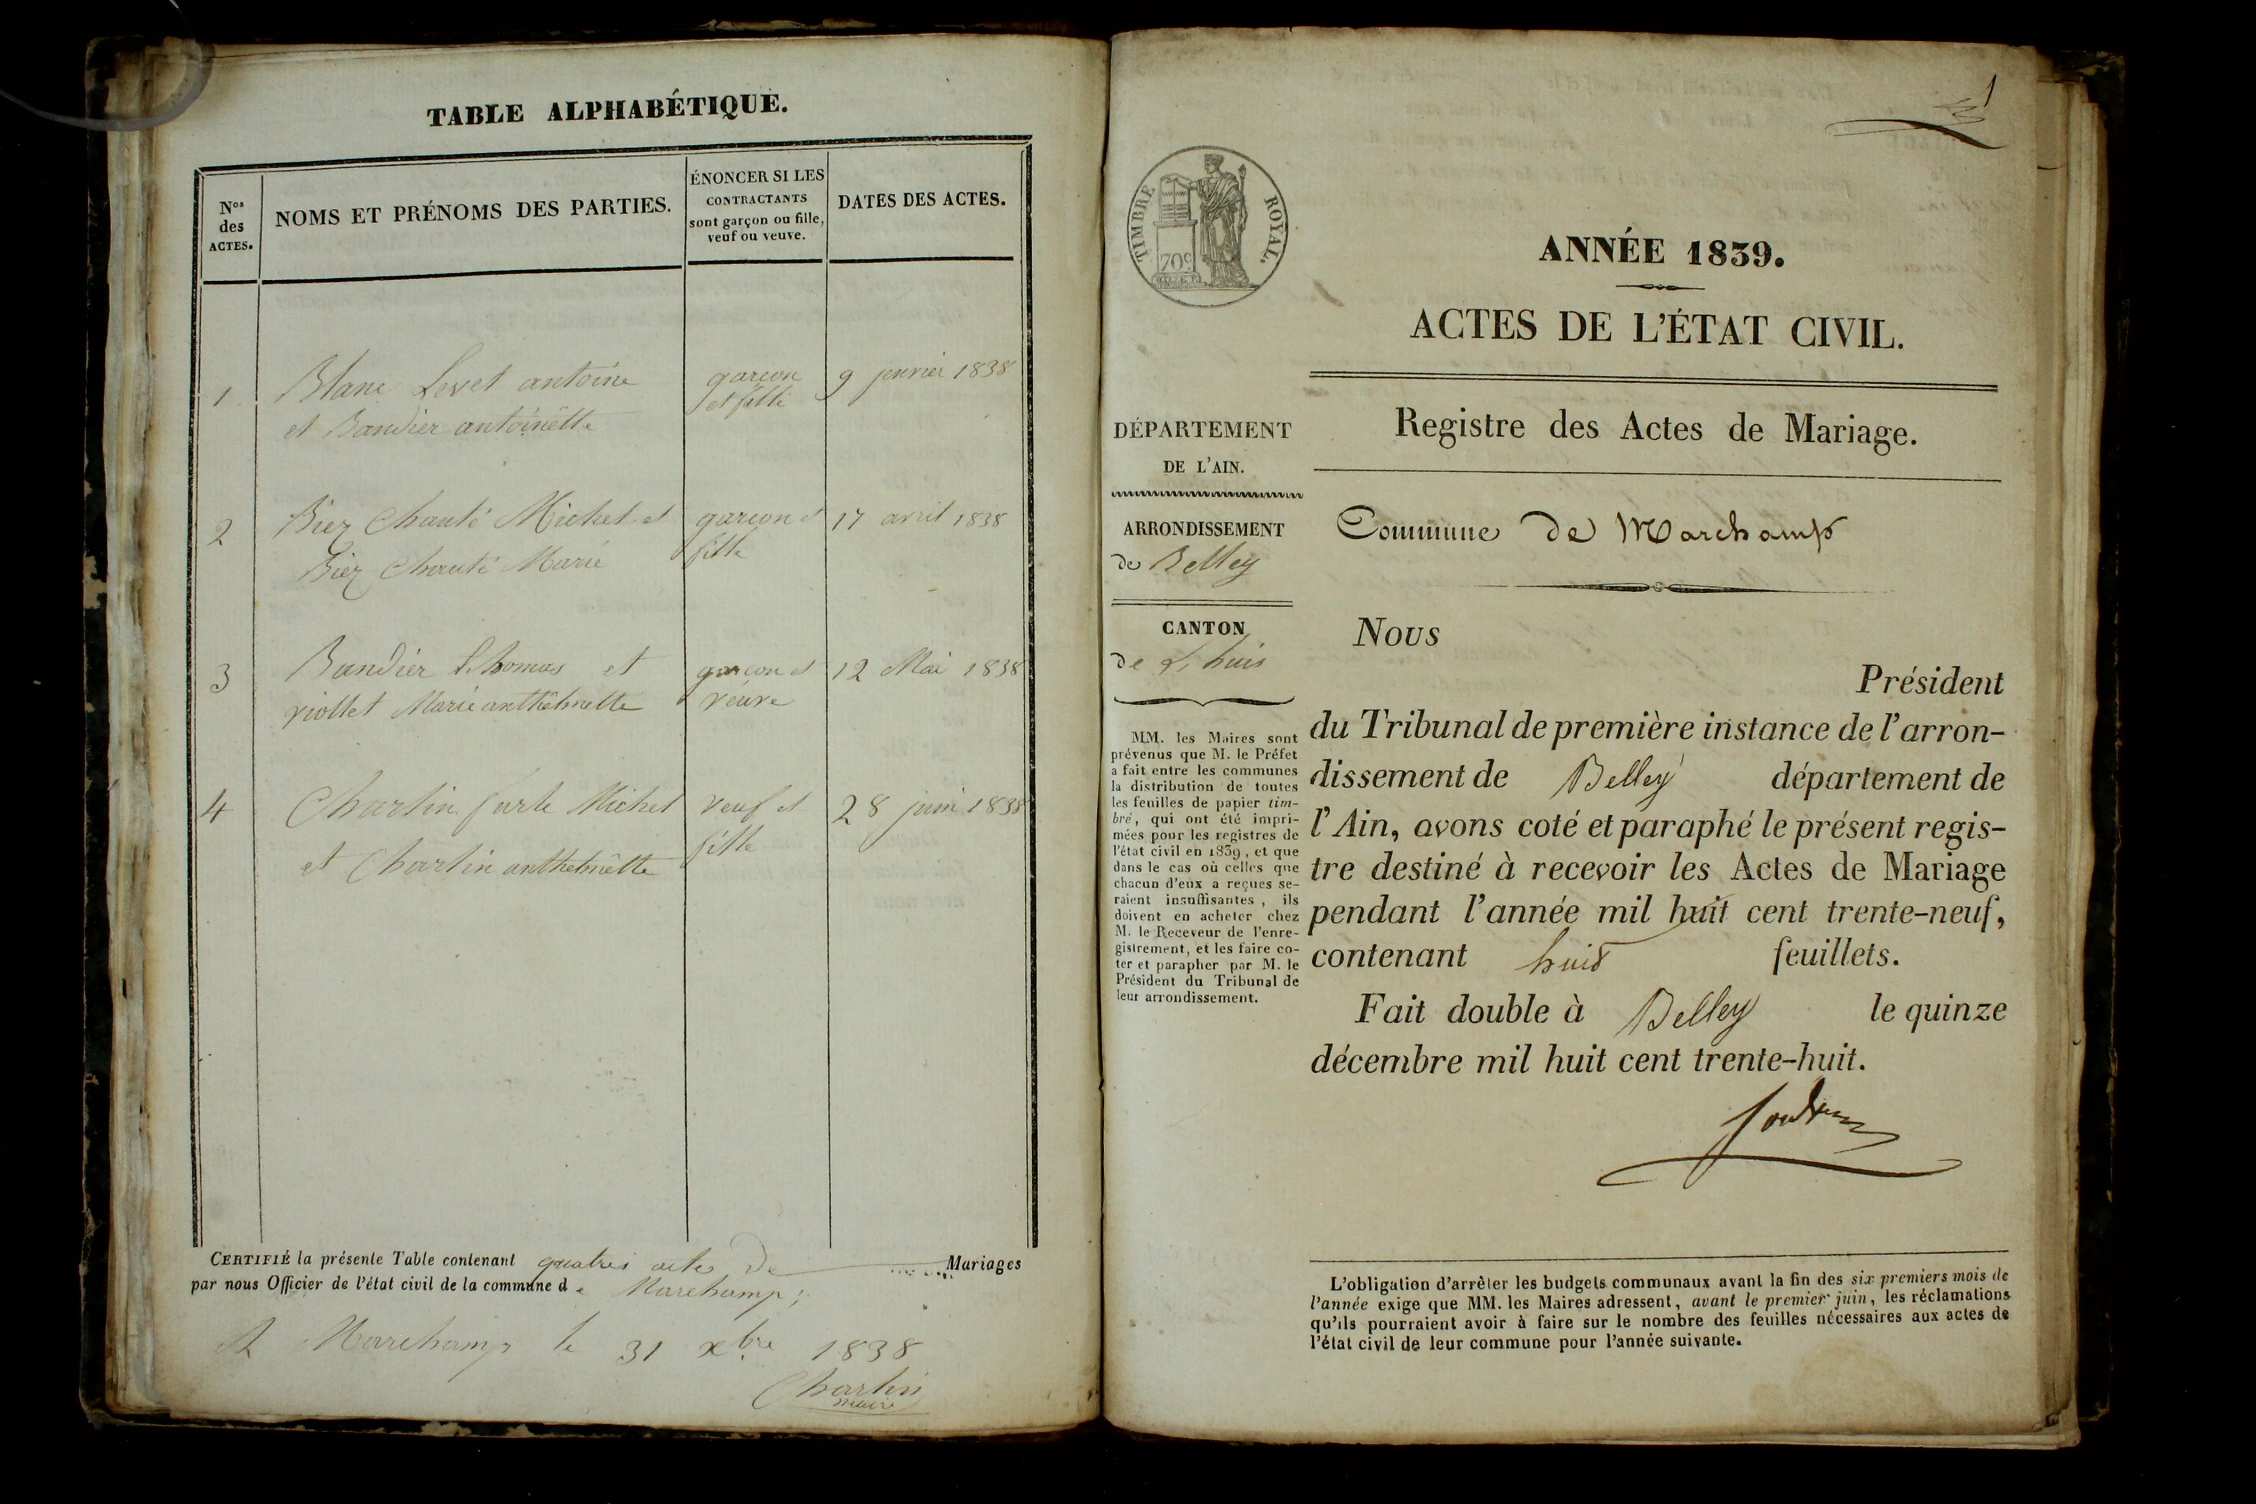 TABLE ALPHABÉTIQUE.
Nos
des
ACTES.
NOMS ET PRÉNOMS DES PARTIES.
ÉNONCER SI LES
CONTRACTANTS
sont garçon ou fille,
veuf ou veuve.
DATES DES ACTES.
1 Blanc Levet antoine garçon 9 janvier 1838
et Bandier antoinette et fille
2 Biez Chanté Michel et garçon et 17 avril 1838
Biez Chanté Marie fille
3 Bandier thomas et garçon et 12 Mai 1838
viollet Marie anthelmette veuve
4 Charlin Michel veuf et 28 juin 1838
et Charlin anthelmette fille
CERTIFIÉ la présente Table contenant quatres actes de Mariages
par nous Officier de l'état civil de la commune de Marchamp;
A Marchamp le 31 xbre 1838
Charlin
maire
1
TIMBRE ROYAL.
70c
ANNÉE 1839.
ACTES DE L'ÉTAT CIVIL.
Registre des Actes de Mariage.
DÉPARTEMENT
DE L'AIN.
ARRONDISSEMENT
de Belley
CANTON
de L'huis
MM. les Maires sont
prévenus que M. le Préfet
a fait entre les communes
la distribution de toutes
les feuilles de papier tim-
bré, qui ont été impri-
mées pour les registres de
l'état civil en 1839, et que
dans le cas où celles que
chacun d'eux a reçues se-
raient insuffisantes, ils
doivent en acheter chez
M. le Receveur de l'enre-
gistrement, et les faire co-
ter et parapher par M. le
Président du Tribunal de
leur arrondissement.
Commune de Marchamp
Nous
Président
du Tribunal de première instance de l'arron-
dissement de Belley département de
l'Ain, avons coté et paraphé le présent regis-
tre destiné à recevoir les Actes de Mariage
pendant l'année mil huit cent trente-neuf,
contenant huit feuillets.
Fait double à Belley le quinze
décembre mil huit cent trente-huit.
L'obligation d'arrêter les budgets communaux avant la fin des six premiers mois de
l'année exige que MM. les Maires adressent, avant le premier juin, les réclamations
qu'ils pourraient avoir à faire sur le nombre des feuilles nécessaires aux actes de
l'état civil de leur commune pour l'année suivante.